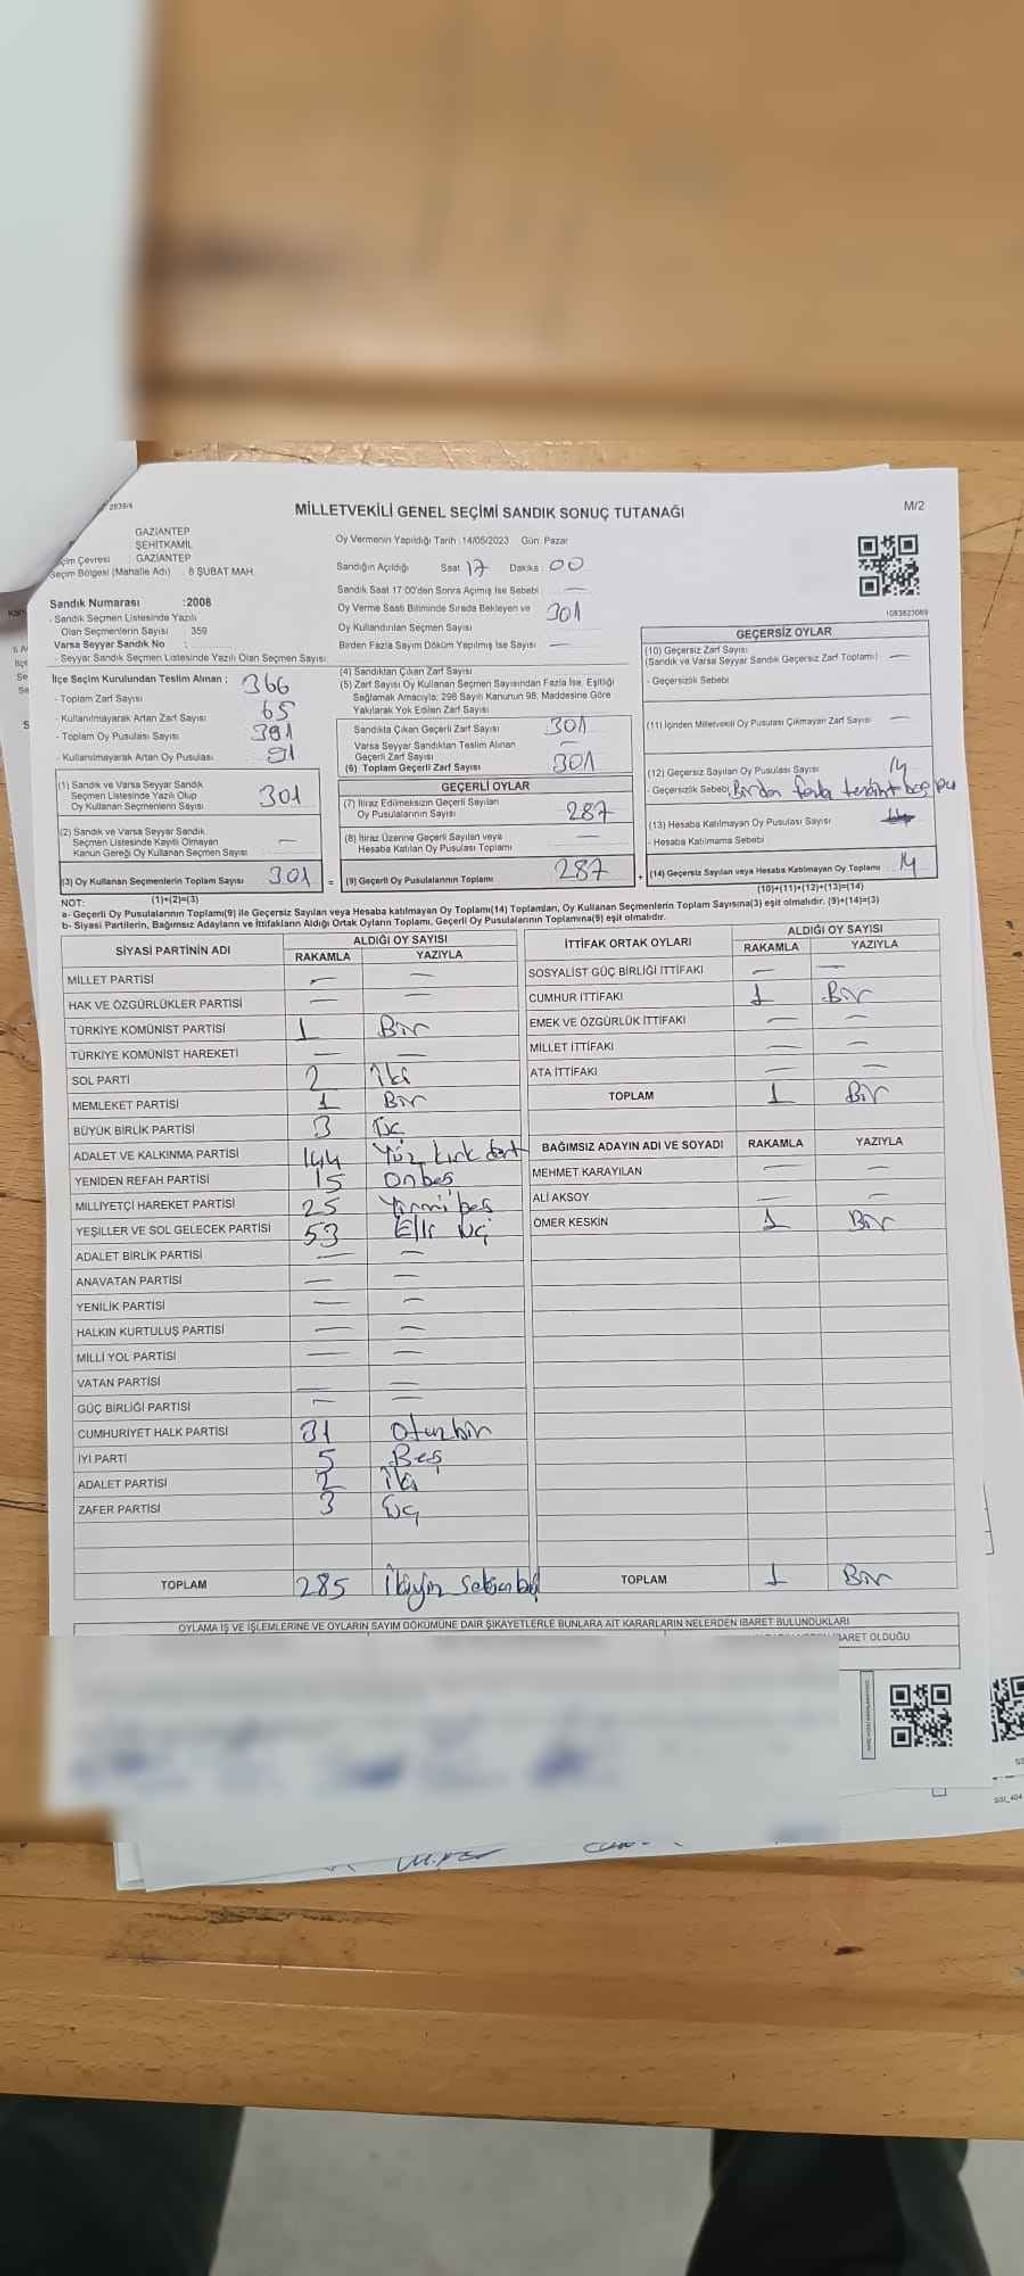 2839/4
MİLLETVEKİLİ GENEL SEÇİMİ SANDIK SONUÇ TUTANAĞI
M/2
GAZİANTEP
ŞEHİTKAMİL
çim Çevresi : GAZİANTEP
Seçim Bölgesi (Mahalle Adı) : 8 ŞUBAT MAH.
Oy Vermenin Yapıldığı Tarih :14/05/2023 Gün: Pazar
Sandığın Açıldığı Saat 17 Dakika : 00
Sandık Saat 17:00'den Sonra Açımış İse Sebebi —
Oy Verme Saati Bitiminde Sırada Bekleyen ve
Oy Kullandırılan Seçmen Sayısı 301
Birden Fazla Sayım Döküm Yapılmış İse Sayısı —
1083823069
Sandık Numarası :2008
- Sandık Seçmen Listesinde Yazılı
Olan Seçmenlerin Sayısı : 359
Varsa Seyyar Sandık No :
- Seyyar Sandık Seçmen Listesinde Yazılı Olan Seçmen Sayısı:
İlçe Seçim Kurulundan Teslim Alınan :
- Toplam Zarf Sayısı 366
- Kullanılmayarak Artan Zarf Sayısı 65
- Toplam Oy Pusulası Sayısı 391
- Kullanılmayarak Artan Oy Pusulası 91
(1) Sandık ve Varsa Seyyar Sandık
Seçmen Listesinde Yazılı Olup
Oy Kullanan Seçmenlerin Sayısı 301
(2) Sandık ve Varsa Seyyar Sandık
Seçmen Listesinde Kayıtlı Olmayan
Kanun Gereği Oy Kullanan Seçmen Sayısı —
(3) Oy Kullanan Seçmenlerin Toplam Sayısı 301 =
(4) Sandıktan Çıkan Zarf Sayısı
(5) Zarf Sayısı Oy Kullanan Seçmen Sayısından Fazla İse, Eşitliği
Sağlamak Amacıyla; 298 Sayılı Kanunun 98. Maddesine Göre
Yakılarak Yok Edilen Zarf Sayısı
Sandıkta Çıkan Geçerli Zarf Sayısı 301
Varsa Seyyar Sandıktan Teslim Alınan
Geçerli Zarf Sayısı —
(6) Toplam Geçerli Zarf Sayısı 301
GEÇERLİ OYLAR
(7) İtiraz Edilmeksizin Geçerli Sayılan
Oy Pusulalarının Sayısı 287
(8) İtiraz Üzerine Geçerli Sayılan veya
Hesaba Katılan Oy Pusulası Toplamı —
(9) Geçerli Oy Pusulalarının Toplamı 287 +
GEÇERSİZ OYLAR
(10) Geçersiz Zarf Sayısı
(Sandık ve Varsa Seyyar Sandık Geçersiz Zarf Toplamı) —
- Geçersizlik Sebebi
(11) İçinden Milletvekili Oy Pusulası Çıkmayan Zarf Sayısı —
(12) Geçersiz Sayılan Oy Pusulası Sayısı 14
- Geçersizlik Sebebi Birden fazla
(13) Hesaba Katılmayan Oy Pusulası Sayısı
- Hesaba Katılmama Sebebi
(14) Geçersiz Sayılan veya Hesaba Katılmayan Oy Toplamı 14
NOT: (1)+(2)=(3)
(10)+(11)+(12)+(13)=(14)
a- Geçerli Oy Pusulalarının Toplamı(9) ile Geçersiz Sayılan veya Hesaba katılmayan Oy Toplamı(14) Toplamları, Oy Kullanan Seçmenlerin Toplam Sayısına(3) eşit olmalıdır. (9)+(14)=(3)
b- Siyasi Partilerin, Bağımsız Adayların ve İttifakların Aldığı Ortak Oyların Toplamı, Geçerli Oy Pusulalarının Toplamına(9) eşit olmalıdır.
SİYASİ PARTİNİN ADI
ALDIĞI OY SAYISI
RAKAMLA YAZIYLA
MİLLET PARTİSİ — —
HAK VE ÖZGÜRLÜKLER PARTİSİ — —
TÜRKİYE KOMÜNİST PARTİSİ 1 Bir
TÜRKİYE KOMÜNİST HAREKETİ — —
SOL PARTİ 2 İki
MEMLEKET PARTİSİ 1 Bir
BÜYÜK BİRLİK PARTİSİ 3 Üç
ADALET VE KALKINMA PARTİSİ 144 Yüz kırk dört
YENİDEN REFAH PARTİSİ 15 Onbeş
MİLLİYETÇİ HAREKET PARTİSİ 25 Yirmi beş
YEŞİLLER VE SOL GELECEK PARTİSİ 53 Elli üç
ADALET BİRLİK PARTİSİ — —
ANAVATAN PARTİSİ — —
YENİLİK PARTİSİ — —
HALKIN KURTULUŞ PARTİSİ — —
MİLLİ YOL PARTİSİ — —
VATAN PARTİSİ — —
GÜÇ BİRLİĞİ PARTİSİ — —
CUMHURİYET HALK PARTİSİ 31 Otuzbir
İYİ PARTİ 5 Beş
ADALET PARTİSİ 2 İki
ZAFER PARTİSİ 3 Üç
TOPLAM 285
İTTİFAK ORTAK OYLARI
ALDIĞI OY SAYISI
RAKAMLA YAZIYLA
SOSYALİST GÜÇ BİRLİĞİ İTTİFAKI — —
CUMHUR İTTİFAKI 1 Bir
EMEK VE ÖZGÜRLÜK İTTİFAKI — —
MİLLET İTTİFAKI — —
ATA İTTİFAKI — —
TOPLAM 1 Bir
BAĞIMSIZ ADAYIN ADI VE SOYADI RAKAMLA YAZIYLA
MEHMET KARAYILAN — —
ALİ AKSOY — —
ÖMER KESKİN 1 Bir
TOPLAM 1 Bir
OYLAMA İŞ VE İŞLEMLERİNE VE OYLARIN SAYIM DÖKÜMÜNE DAİR ŞİKAYETLERLE BUNLARA AİT KARARLARIN NELERDEN İBARET BULUNDUKLARI
BARET OLDUĞU